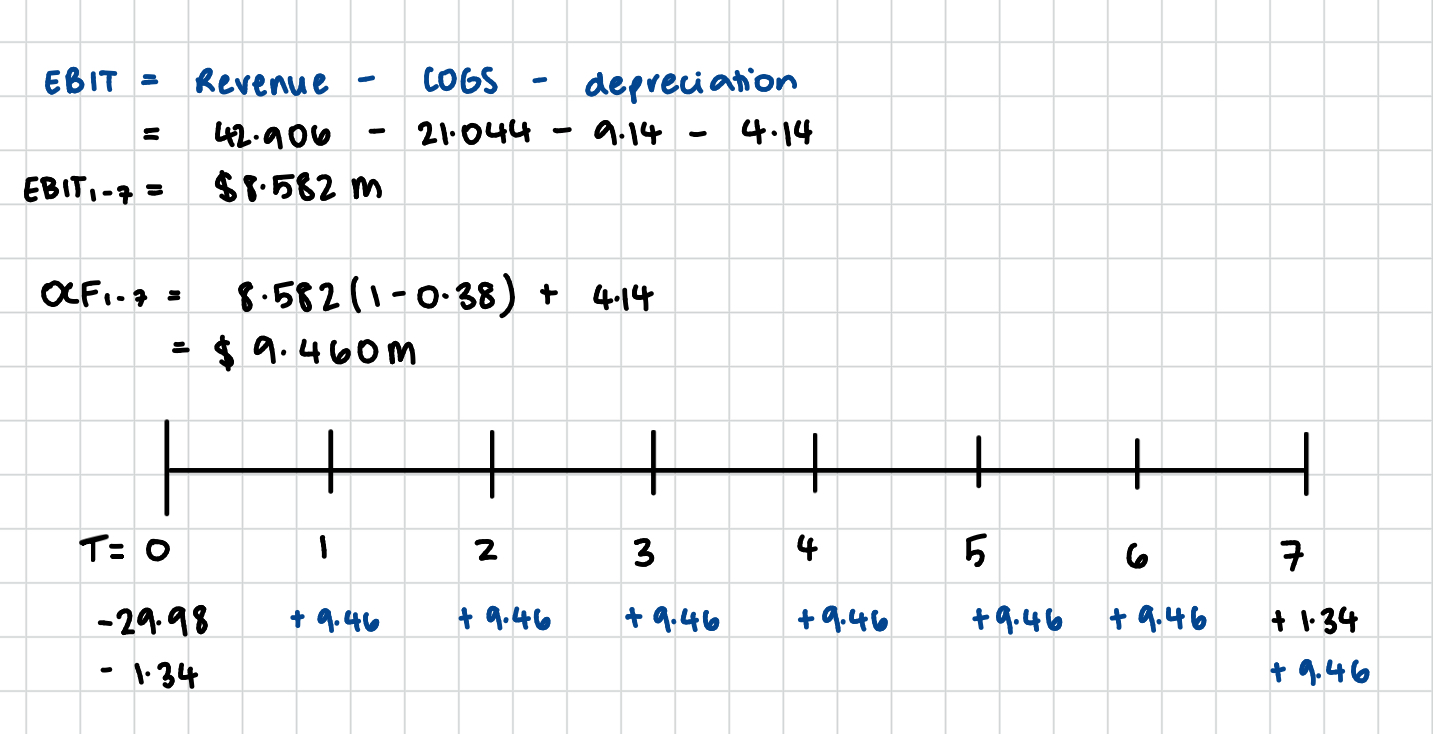 EBIT = Revenue - COGS - depreciation
= 42.906 - 21.044 - 9.14 - 4.14
EBIT₁₋₇ = $8.582 m
OCF₁₋₇ = 8.582(1-0.38) + 4.14
= $ 9.460m
T= 0 1 2 3 4 5 6 7
-29.98 + 9.46 + 9.46 + 9.46 + 9.46 + 9.46 + 9.46 + 1.34
- 1.34 + 9.46